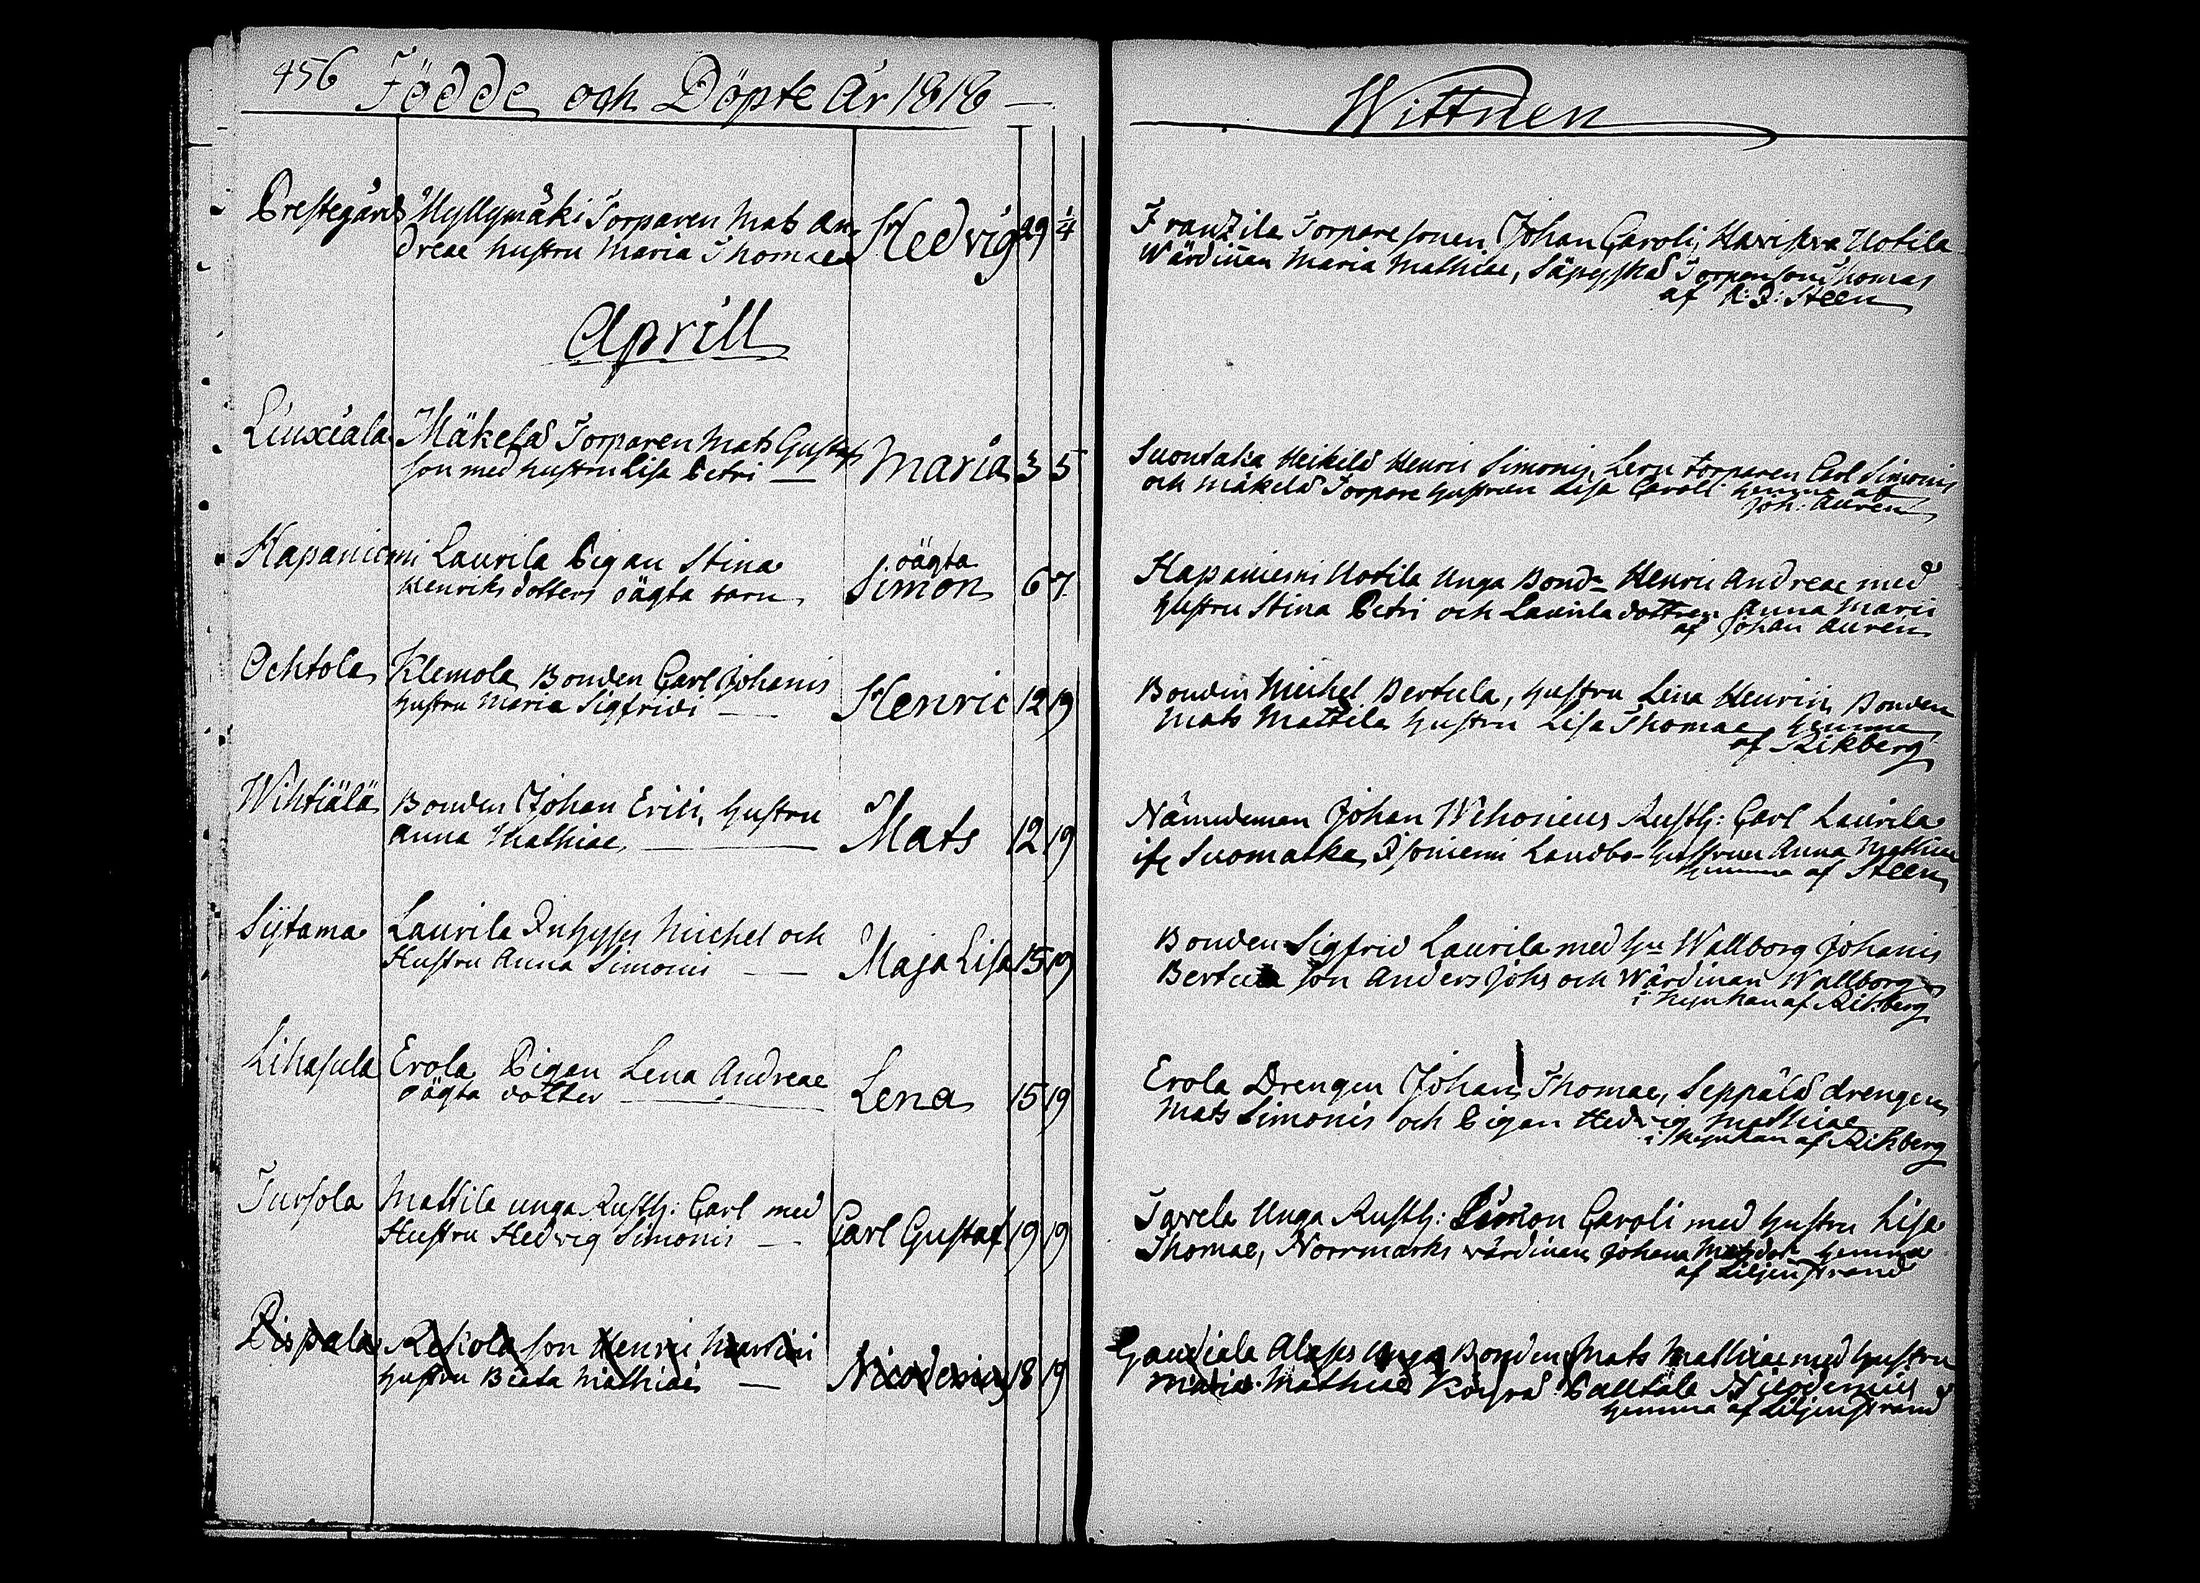 456 Födde och Döpte År 1818
Prestegårds Myllymäki Torparen Mats An-
dreae hustru Maria Thomae Hedvig 29 1/4
Aprill
Liuxiala Mäkelä Torparen Mats Gustafs
son med hustru Lisa Petri — Maria 3 5
Hapaniemi Laurila Pigan Stina oägta
Henriksdotters oägta barn Simon 6 7
Ochtola Klemola Bonden Carl Johanis
hustru Maria Sigfridi — Henric 12 19
Wihtiälä Bonden Johan Erici, hustru
Anna Mathiae — Mats 12 19
Sytama Laurila Inhyses Michel och
Hustru Anna Simonis — Maja Lisa 15 19
Lihasula Erola Pigan Lena Andreae
oägta dotter — Lena 15 19
Tursola Mattila unga Rusth: Carl med
Hustru Hedvig Simonis — Carl Gustaf 19 19
Pispala Rekola son Henric
hustru Beata Mathiae — Nicodemus 18 19
Wittnen
Franzila Torpare sonen Johan Caroli, Uotila
Wärdinnan Maria Mathiae, Torpar son Thomas
af Steen
Heikilä Henric Simonis, torparen Carl Simonis
och Mäkelä Torpare hustrun Lisa Caroli hemma af
Joh: Auren
Hapaniemi Uotila Unga Bond- Henric Andreae med
hustru Stina Petri och Laurila dottren Anna Marci
af Johan Auren
Bonden Michel Bertula, hustru Lena Henrici, Bonden
Mats Mattila hustru Lisa Thomae hemma
af Rikberg
Nämndeman Johan Rusth: Carl Laurila
Landbo-hustrun Anna Mathiae
hemma af Steen
Bonden Sigfrid Laurila med Wallborg Johanis
Bertula son Anders Johs och Wärdinan Wallborg
i kyrkan af Rikberg
Erola Drengen Johan Thomae, Seppälä drengen
Mats Simonis och Pigan Hedvig Mathiae
i kyrkan af Rikberg
Tavela Unga Rusth: Simon Caroli med hustru Lisa
Thomae, Norrmarks wärdinan Johana Matsdotr hemma
af Liljenstrand
Unga Bonden Mats Mathiae med hustru
Maria Mathiae
hemma af Liljenstrand